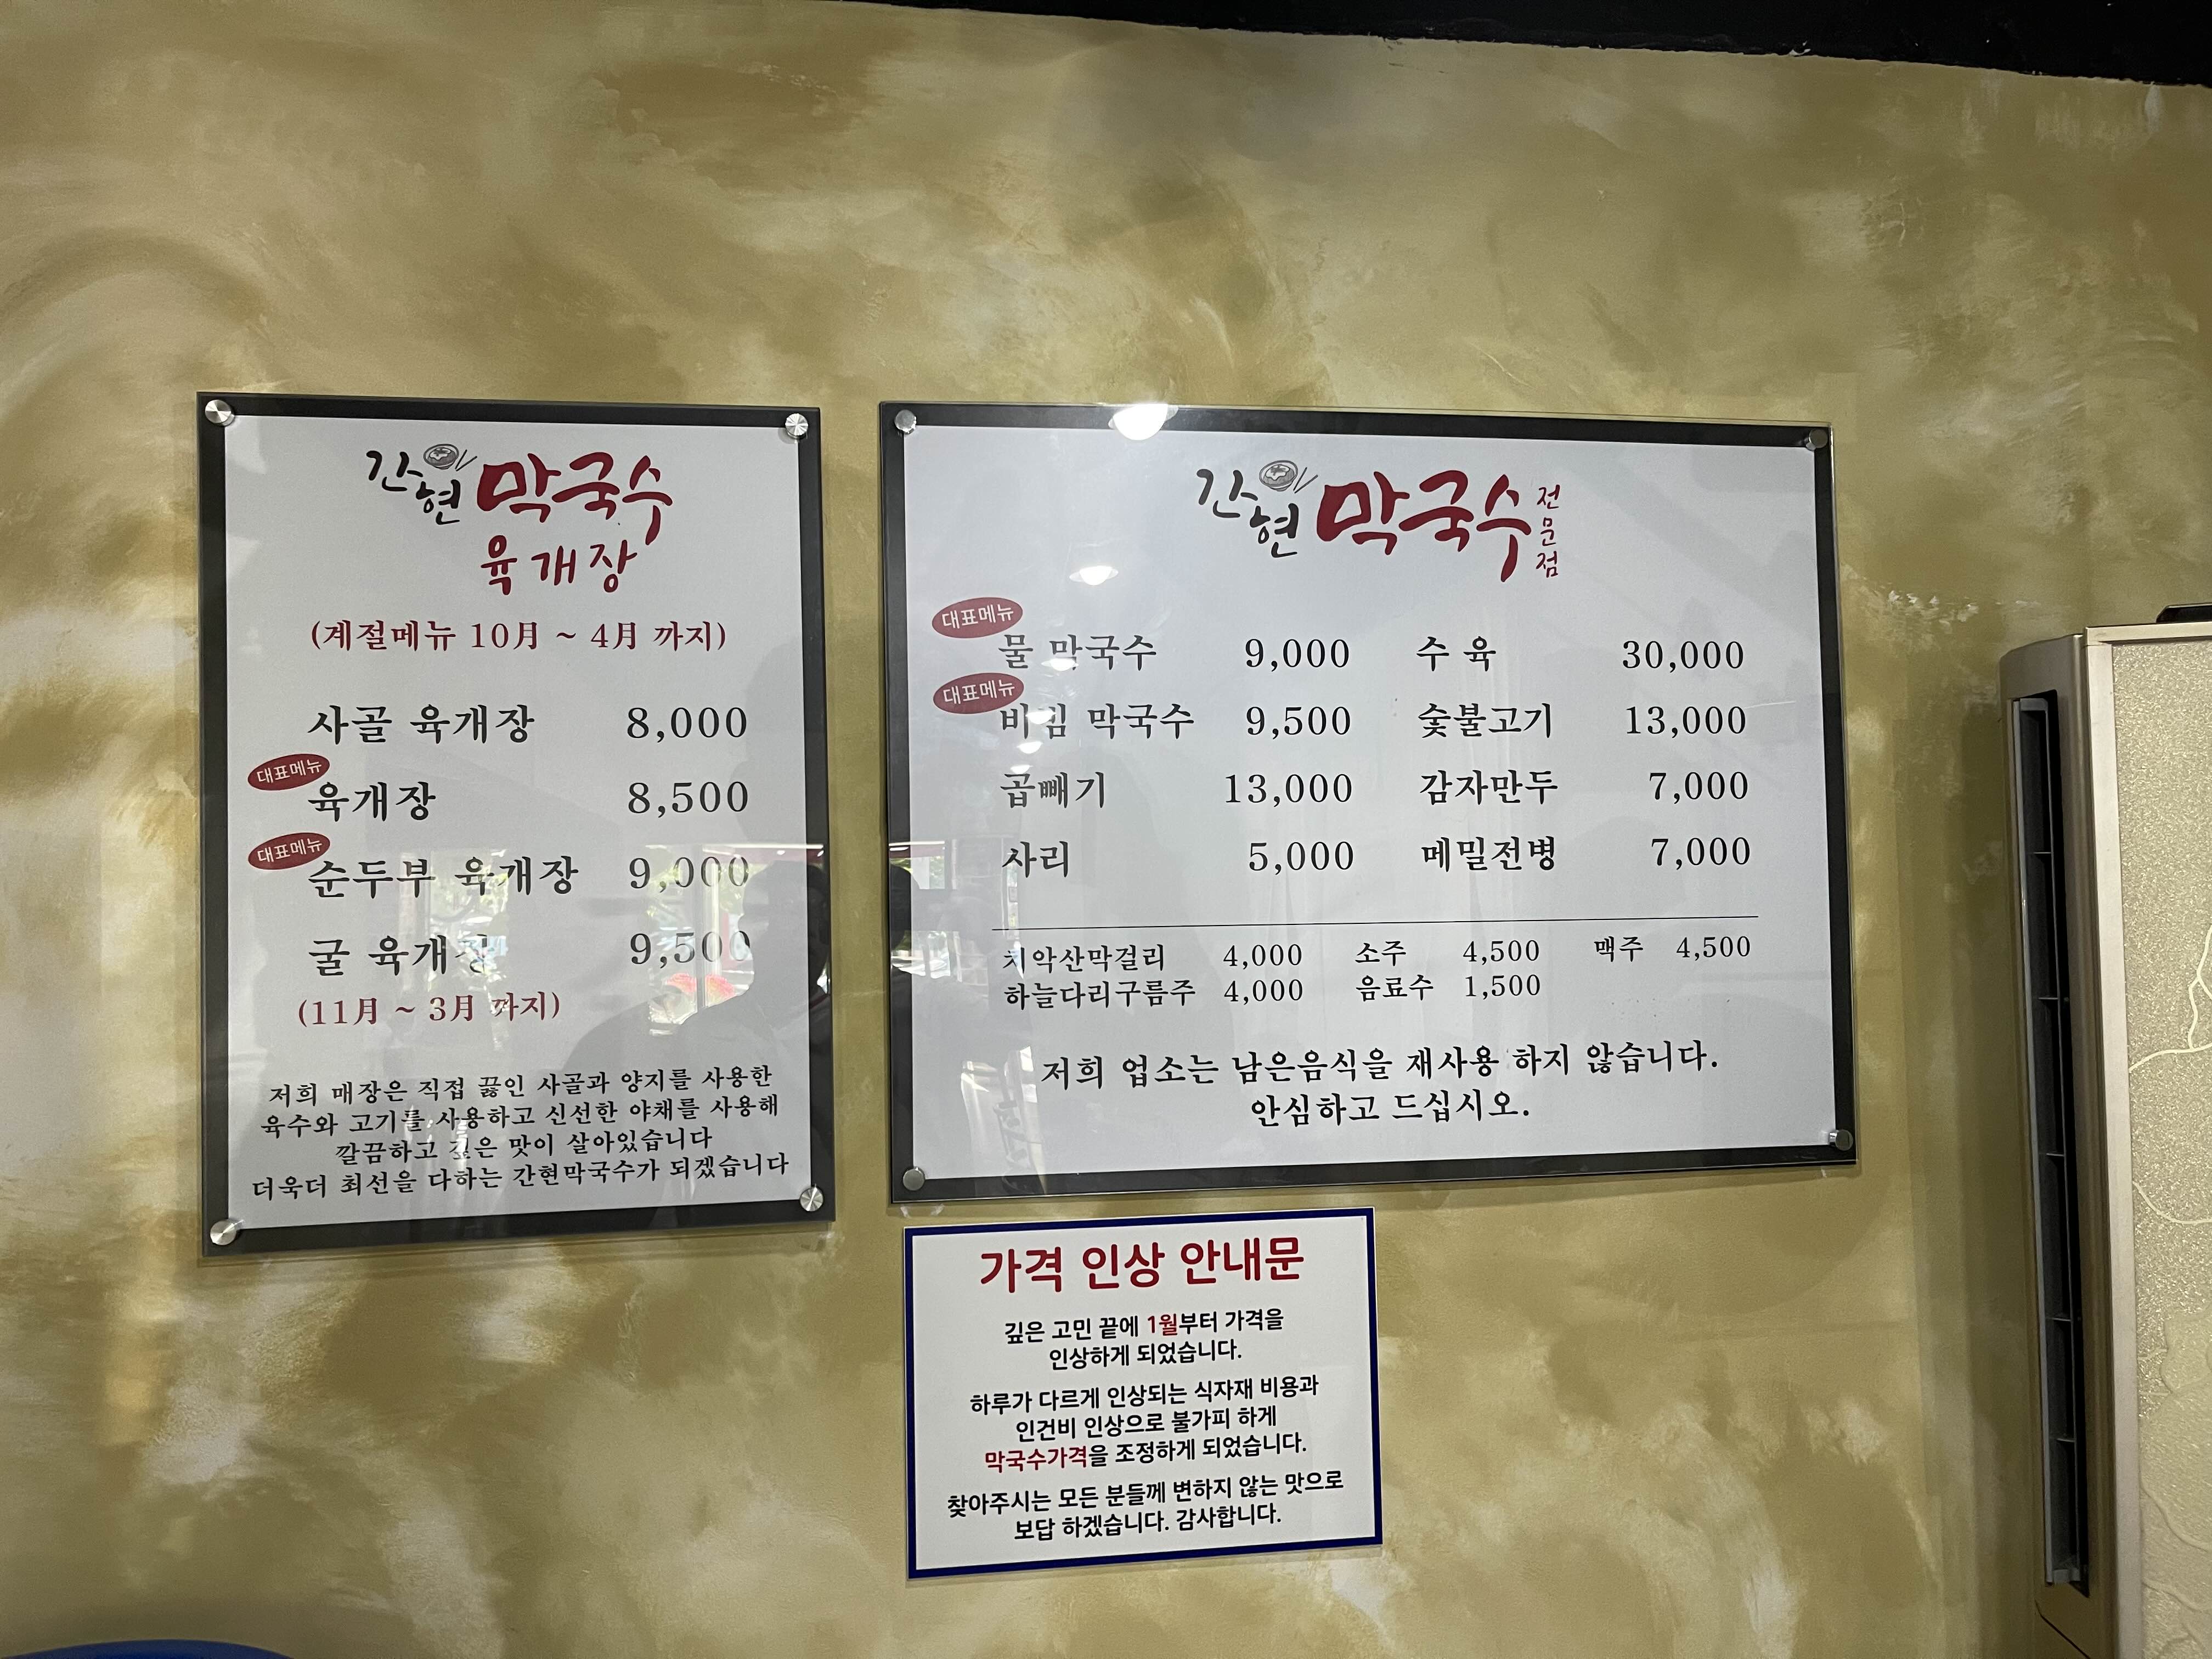 간현 막국수
육개장
(계절메뉴 10月 ~ 4月 까지)
사골 육개장 8,000
대표메뉴
육개장 8,500
대표메뉴
순두부 육개장 9,000
굴 육개장 9,500
(11月 ~ 3月 까지)
저희 매장은 직접 끓인 사골과 양지를 사용한
육수와 고기를 사용하고 신선한 야채를 사용해
깔끔하고 깊은 맛이 살아있습니다
더욱더 최선을 다하는 간현막국수가 되겠습니다
간현 막국수 전문점
대표메뉴
물 막국수 9,000 수육 30,000
대표메뉴
비빔 막국수 9,500 숯불고기 13,000
곱빼기 13,000 감자만두 7,000
사리 5,000 메밀전병 7,000
치악산막걸리 4,000 소주 4,500 맥주 4,500
하늘다리구름주 4,000 음료수 1,500
저희 업소는 남은음식을 재사용 하지 않습니다.
안심하고 드십시오.
가격 인상 안내문
깊은 고민 끝에 1월부터 가격을
인상하게 되었습니다.
하루가 다르게 인상되는 식자재 비용과
인건비 인상으로 불가피 하게
막국수가격을 조정하게 되었습니다.
찾아주시는 모든 분들께 변하지 않는 맛으로
보답 하겠습니다. 감사합니다.